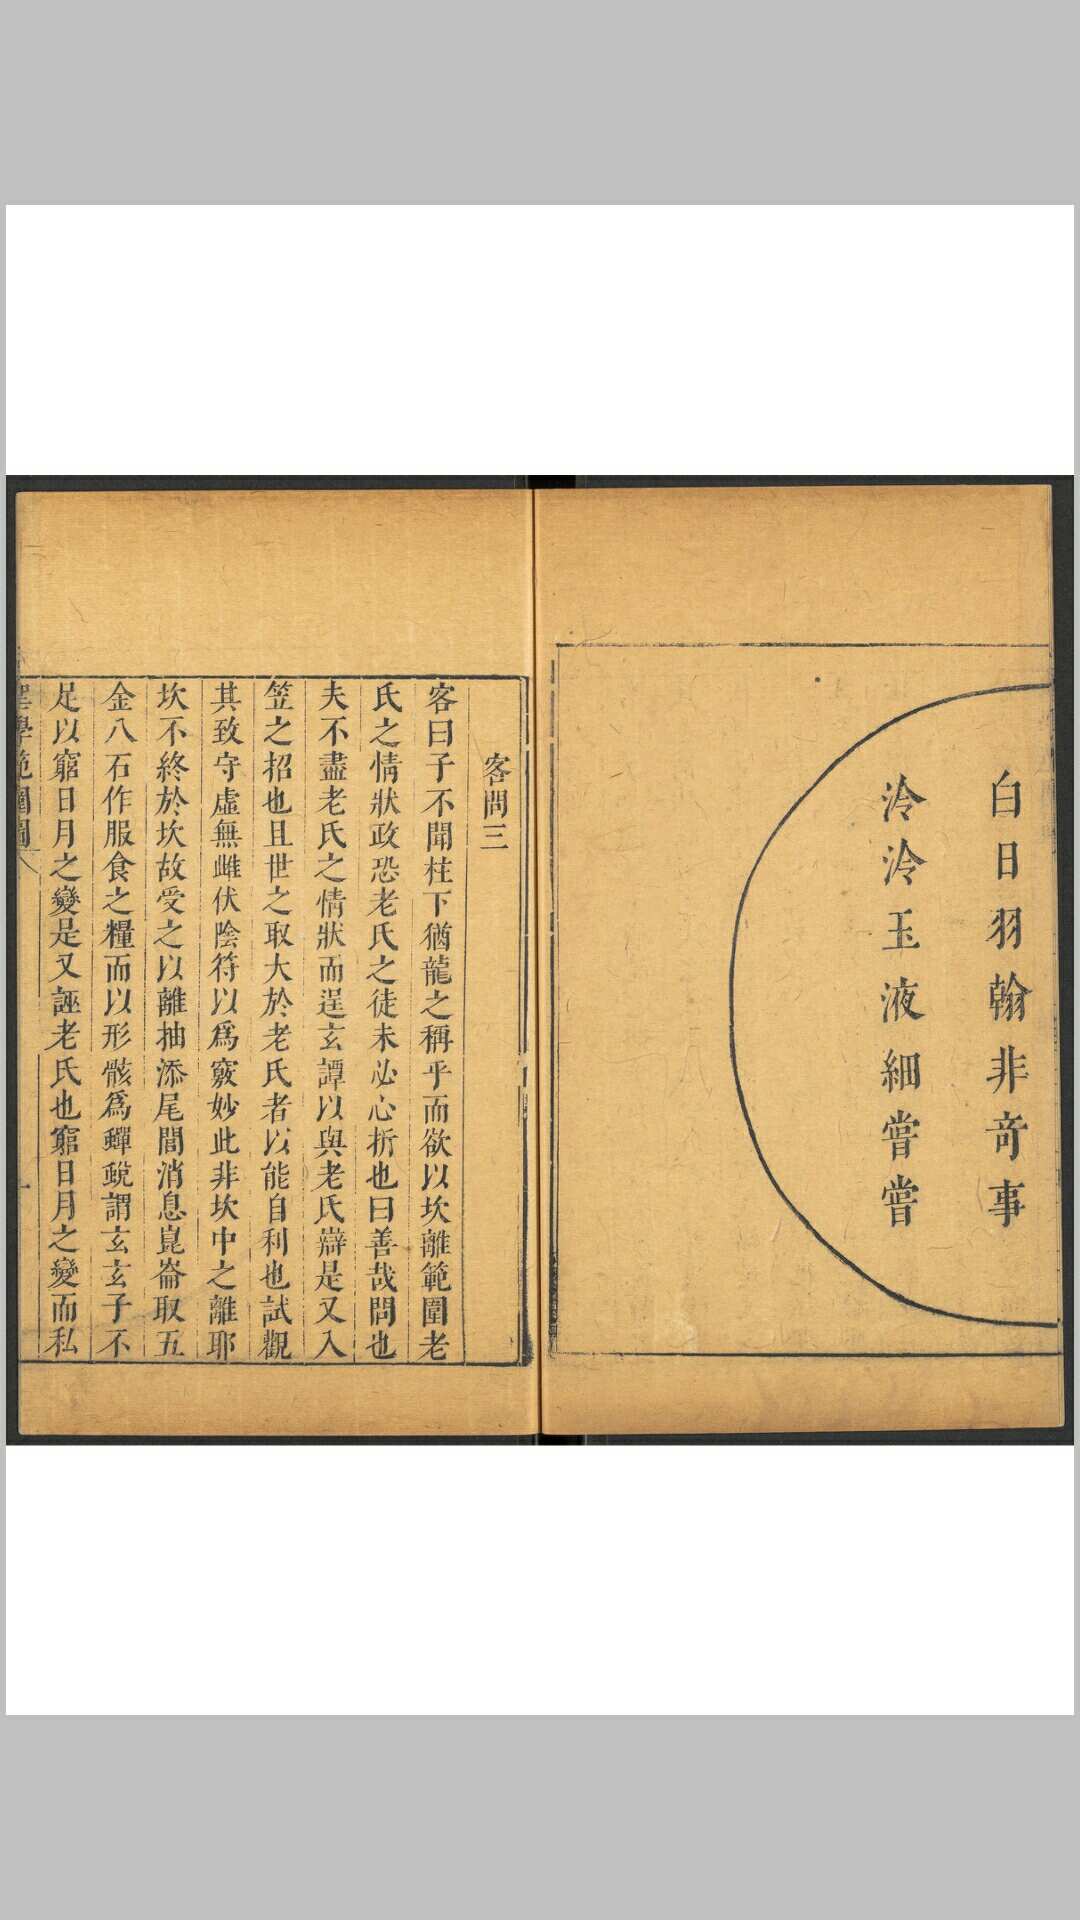 白日羽翰非奇事
泠泠玉液細嘗嘗
客問三
客曰子不聞柱下猶龍之稱乎而欲以坎離範圍老
氏之情狀政恐老氏之徒未必心折也曰善哉問也
夫不盡老氏之情狀而逞玄譚以與老氏辯是又入
笠之招也且世之取大於老氏者以能自利也試觀
其致守虛無雌伏陰符以爲竅妙此非坎中之離耶
坎不終於坎故受之以離抽添尾閭消息崑崙取五
金八石作服食之糧而以形骸爲蟬蛻謂玄玄子不
足以窮日月之變是又誣老氏也窮日月之變而私
聖學範圍圖